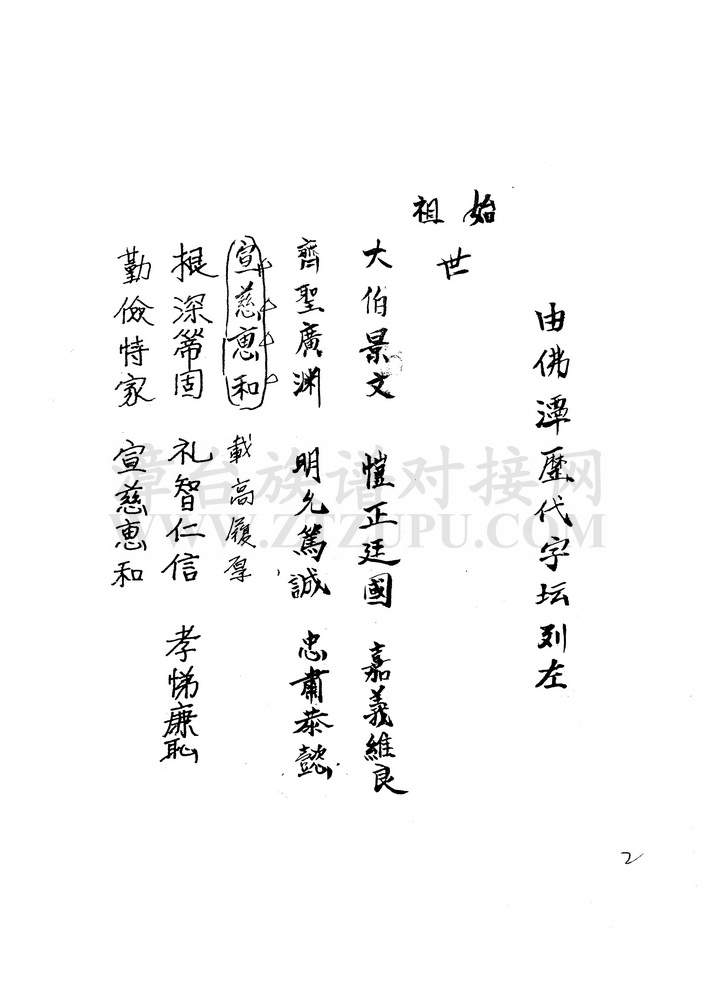 由佛潭歷代字坛列左
始
世
祖
大伯景文 愷正廷國 嘉義維良
齊聖廣渊 明允篤誠 忠肅恭懿
宣慈惠和 載高履厚
根深蒂固 礼智仁信 孝悌廉恥
勤儉持家 宣慈惠和
章台族谱对接网
WWW.ZTZUPU.COM
2